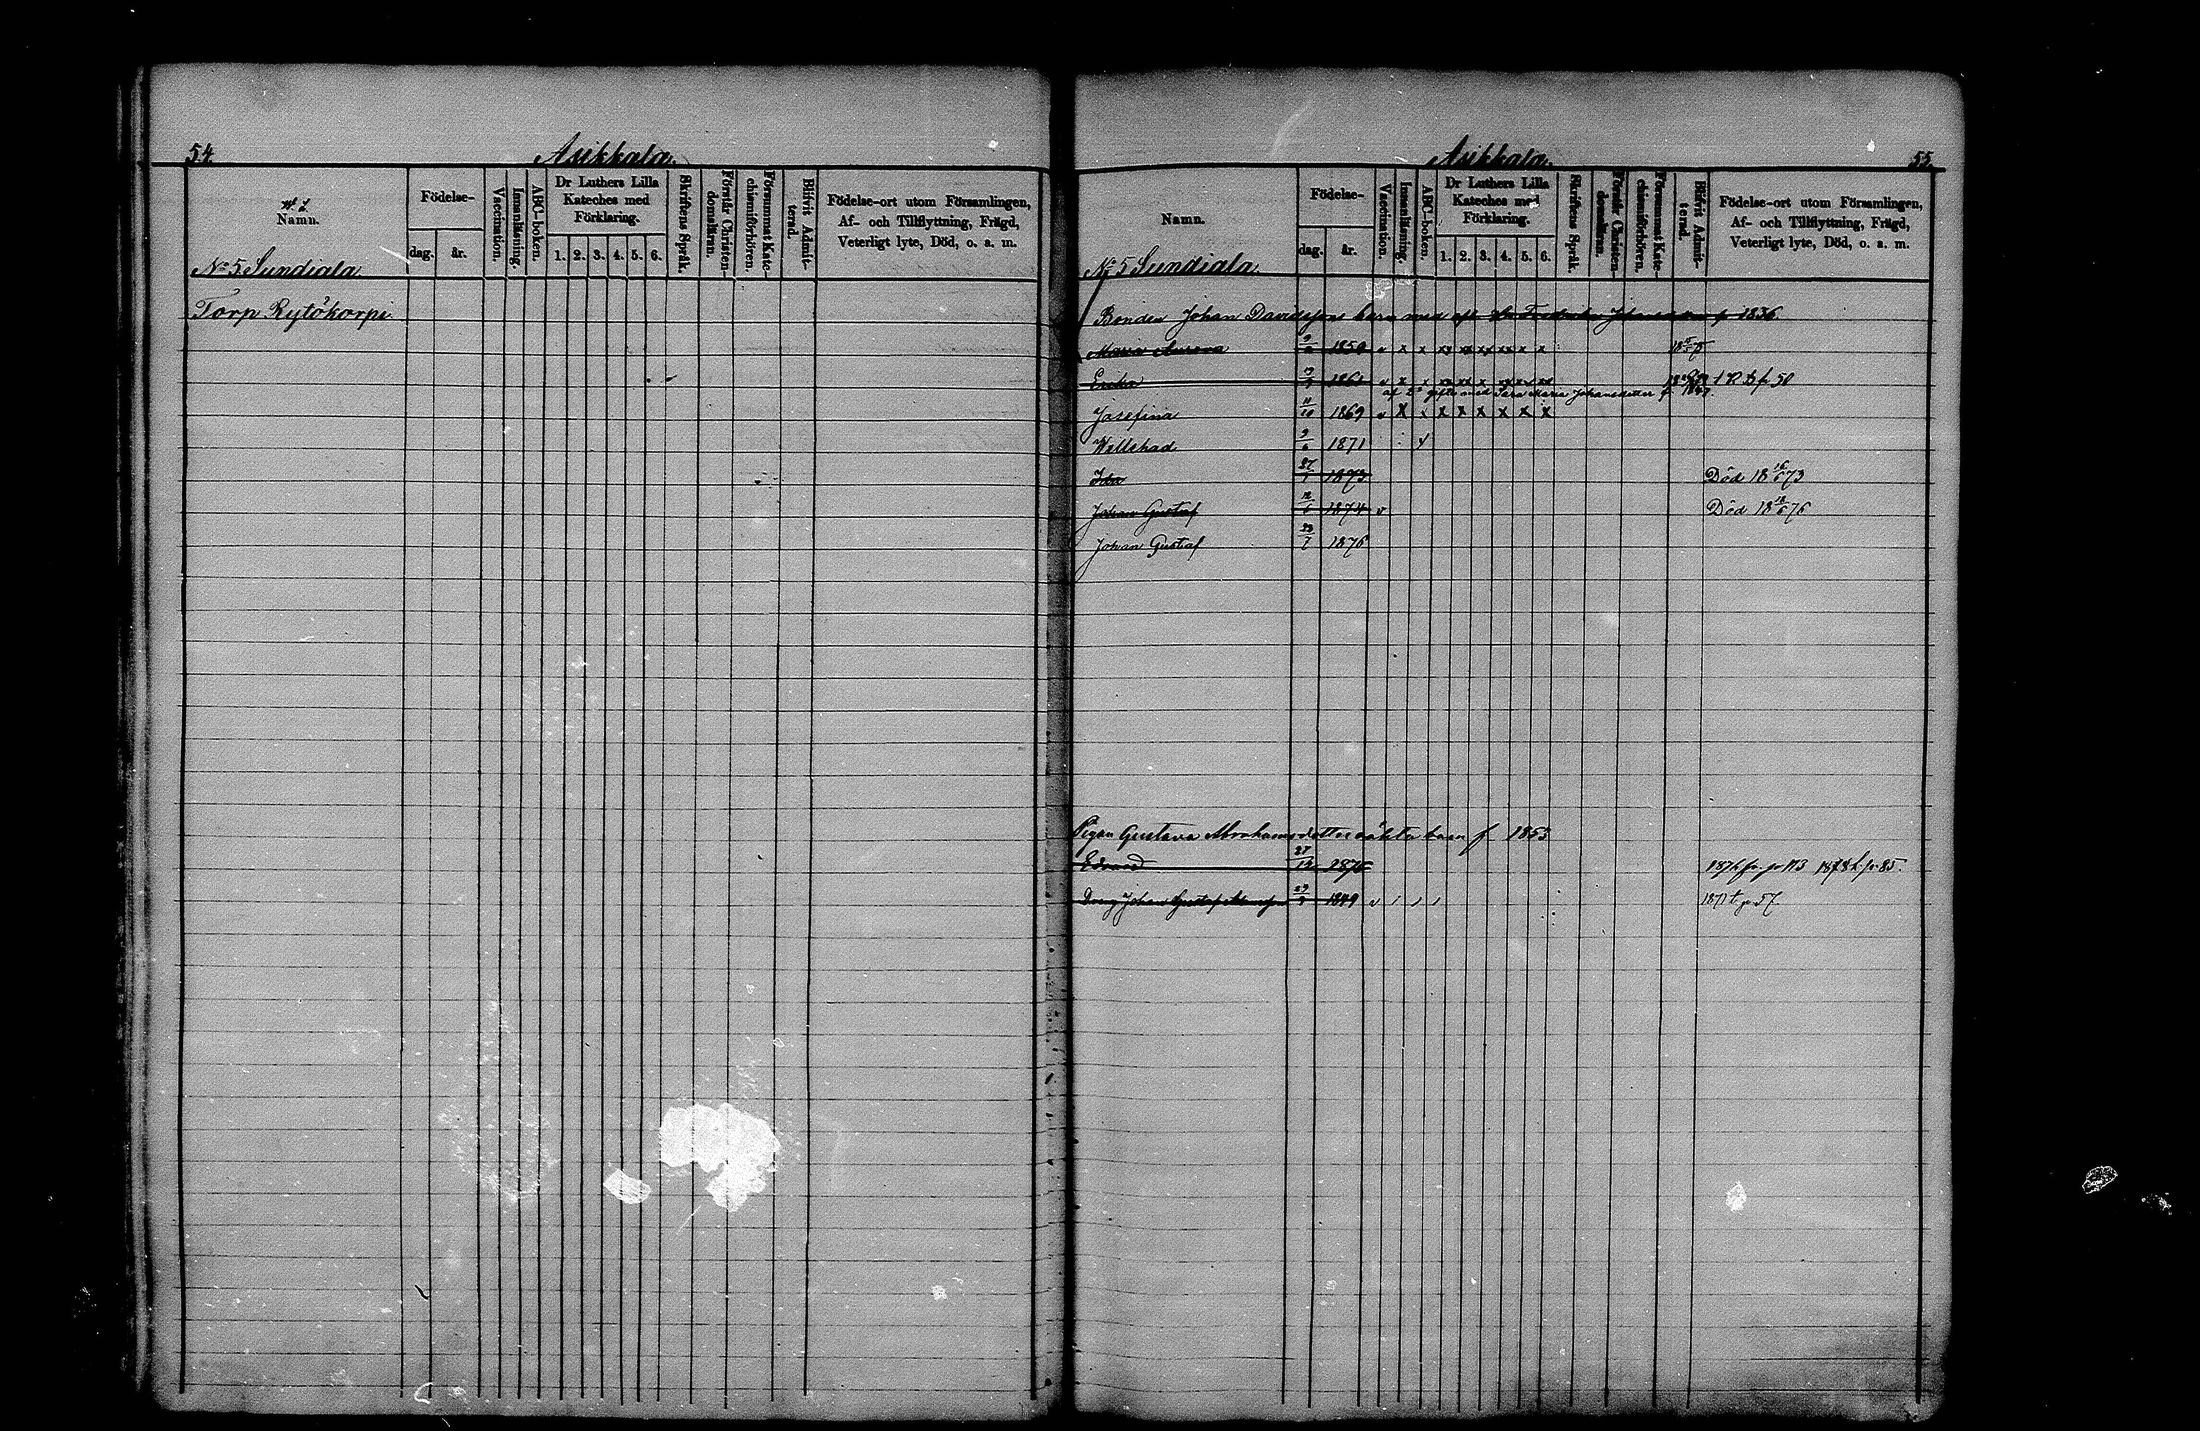 54.
Asikkala.
N:o 1.
Namn.
Födelse-
dag. år.
Vaccination.
Innanläsning.
ABC-boken.
Dr Luthers Lilla Kateches med Förklaring.
1. 2. 3. 4. 5. 6.
Skriftens Språk.
Förstår Christendomsläran.
Försummat Katechismiförhören.
Blifvit Admitterad.
Födelse-ort utom Församlingen,
Af- och Tillflyttning, Frägd,
Veterligt lyte, Död, o. s. m.
No 5 Sundiala
Torp Rytökorpi
Asikkala.
55
Namn.
Födelse-
dag. år.
Vaccination.
Innanläsning.
ABC-boken.
Dr Luthers Lilla Kateches med Förklaring.
1. 2. 3. 4. 5. 6.
Skriftens Språk.
Förstår Christendomsläran.
Försummat Katechismiförhören.
Blifvit Admitterad.
Födelse-ort utom Församlingen,
Af- och Tillflyttning, Frägd,
Veterligt lyte, Död, o. s. m.
No 5 Sundiala
Bonden Johan Davidssons barn med f 1836.
Maria 1859 v x x xx xx xx xx x x
1861 v x x xx xx x xx xx xx
gift med Sara Maria Johansdotter f 1847.
Josefina 11/10 1869 v x x x x x x x x
Willehad 9/6 1871
Ida 27/1 1873 Död 18 16/6 73
Johan Gustaf 12/6 1874 v Död 18 18/6 76
Johan Gustaf 23/7 1876
Pigan Gustava Abrahamsdotters oäkta barn f 1853
Edvard 27/12 1875
Dräng Johan Gustaf 1849 v 1877 t. p 57